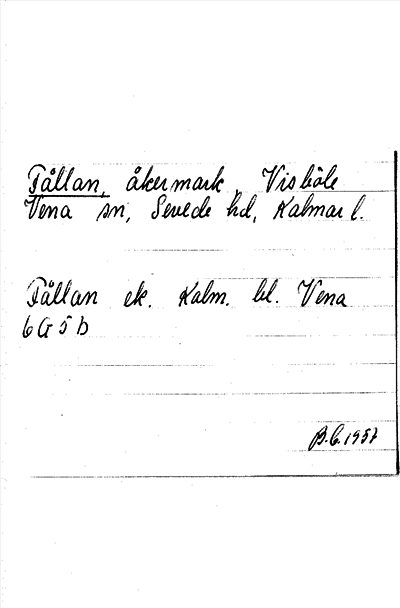 Fållan, åkermark, Visböle
Vena sn, Sevede hd, Kalmar l.
Fållan ek. Kalm. bl. Vena
6 G 5 b
B.C. 1957